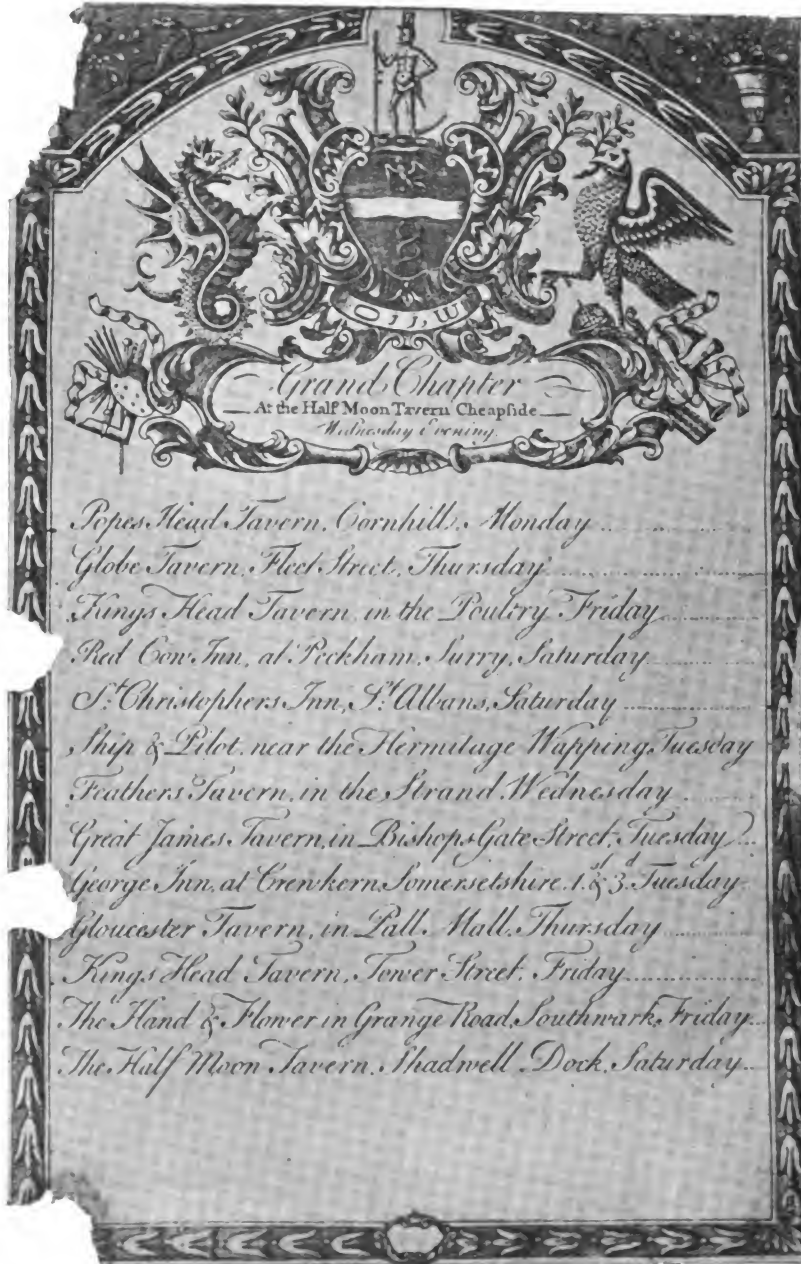 Grand Chapter
At the Half Moon Tavern Cheapſide
Wednesday Evening.
Popes Head Tavern, Cornhill, Monday
Globe Tavern, Fleet Street, Thursday
Kings Head Tavern, in the Poultry Friday
Red Cow Inn, at Peckham, Surry, Saturday
St. Christophers Inn, St. Albans, Saturday
Ship & Pilot, near the Hermitage Wapping Tuesday
Feathers Tavern, in the Strand, Wednesday
Great James Tavern, in Bishops Gate Street, Tuesday
George Inn, at Crewkern Somersetshire, 1st & 3d Tuesday
Gloucester Tavern, in Pall Mall, Thursday
Kings Head Tavern, Tower Street, Friday
The Hand & Flower in Grange Road, Southwark, Friday
The Half Moon Tavern, Shadwell Dock, Saturday